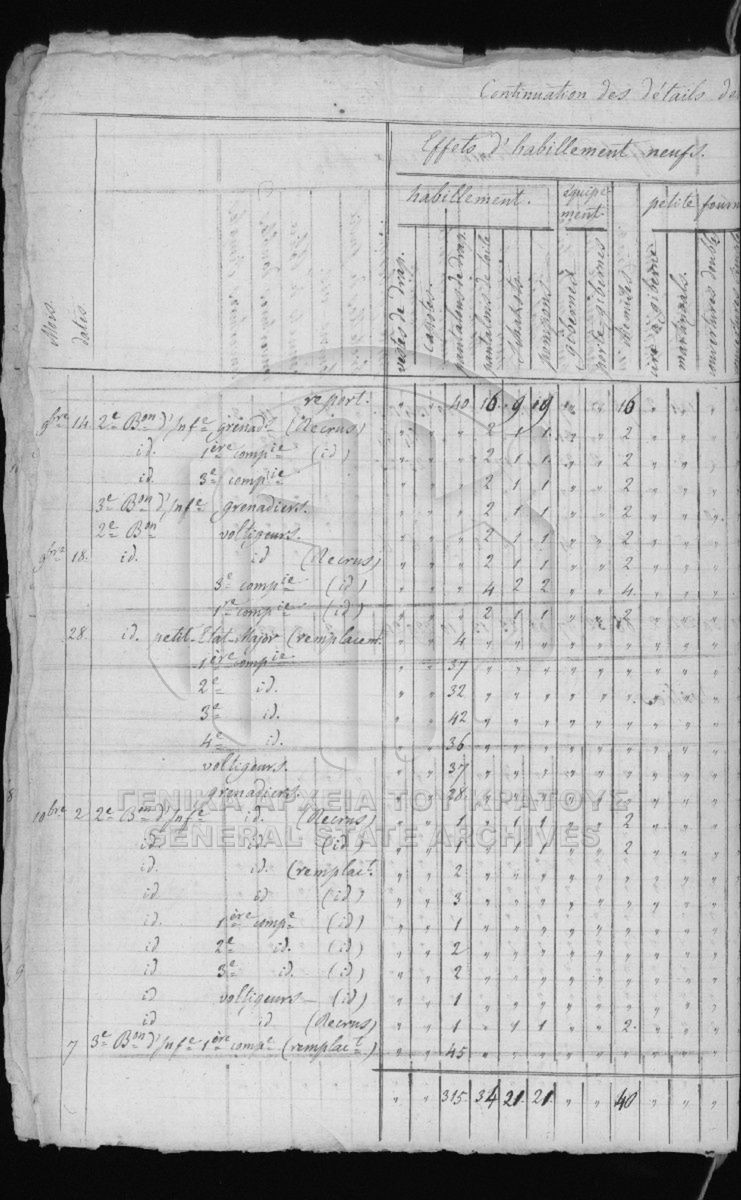 Continuation des détails de
Effets d'habillement neufs.
habillement. équipement. petite fourn
Mois. dates. vestes de drap. capotes. pantalons de drap. pantalons de toile pompons gibernes porte-gibernes
report. " " 40 16 9 19 " " 16 " " "
9bre 14 2e Bon d'Infe grenadrs (Recrus) " " " 2 1 1 " " 2 " " "
id. 1ère compie (id) " " " 2 1 1 " " 2 " " "
id. 3e compie " " " 2 1 1 " " 2 " " "
3e Bon d'Infe grenadiers. " " " 2 1 1 " " 2 " " "
2e Bon voltigeurs. " " " 2 1 1 " " 2 " " "
9bre 18. id. id (Recrus) " " " 2 1 1 " " 2 " " "
3e compie (id) " " " 4 2 2 " " 4 " " "
1re compie (id) " " " 2 1 1 " " 2 " " "
28. id. petit-Etat-Major (remplacemt. " " 4 " " " " " " " " "
1ère compie " " 37 " " " " " " " " "
2e id. " " 32 " " " " " " " " "
3e id. " " 42 " " " " " " " " "
4e id. " " 36 " " " " " " " " "
voltigeurs. " " 37 " " " " " " " " "
grenadiers. " " 38 " " " " " " " " "
ΓΕΝΙΚΑ ΑΡΧΕΙΑ ΤΟΥ ΚΡΑΤΟΥΣ
10bre 2 2e Bon d'Infe id. (Recrus) " " 1 " 1 1 " " 2 " " "
GENERAL STATE ARCHIVES
id. id. (id) " " 1 " 1 1 " " 2 " " "
id. id. (remplact. " " 2 " " " " " " " " "
id id (id) " " 3 " " " " " " " " "
id. 1ère compe (id) " " 1 " " " " " " " " "
id 2e id. (id) " " 2 " " " " " " " " "
id 3e id. (id) " " 2 " " " " " " " " "
id voltigeurs (id) " " 1 " " " " " " " " "
id id (Recrus) " " 1 " 1 1 " " 2 " " "
7 3e Bon d'Infe 1ère compe (remplact) " " 45 " " " " " " " " "
" " 315. 34 21. 21. " " 40 " " "